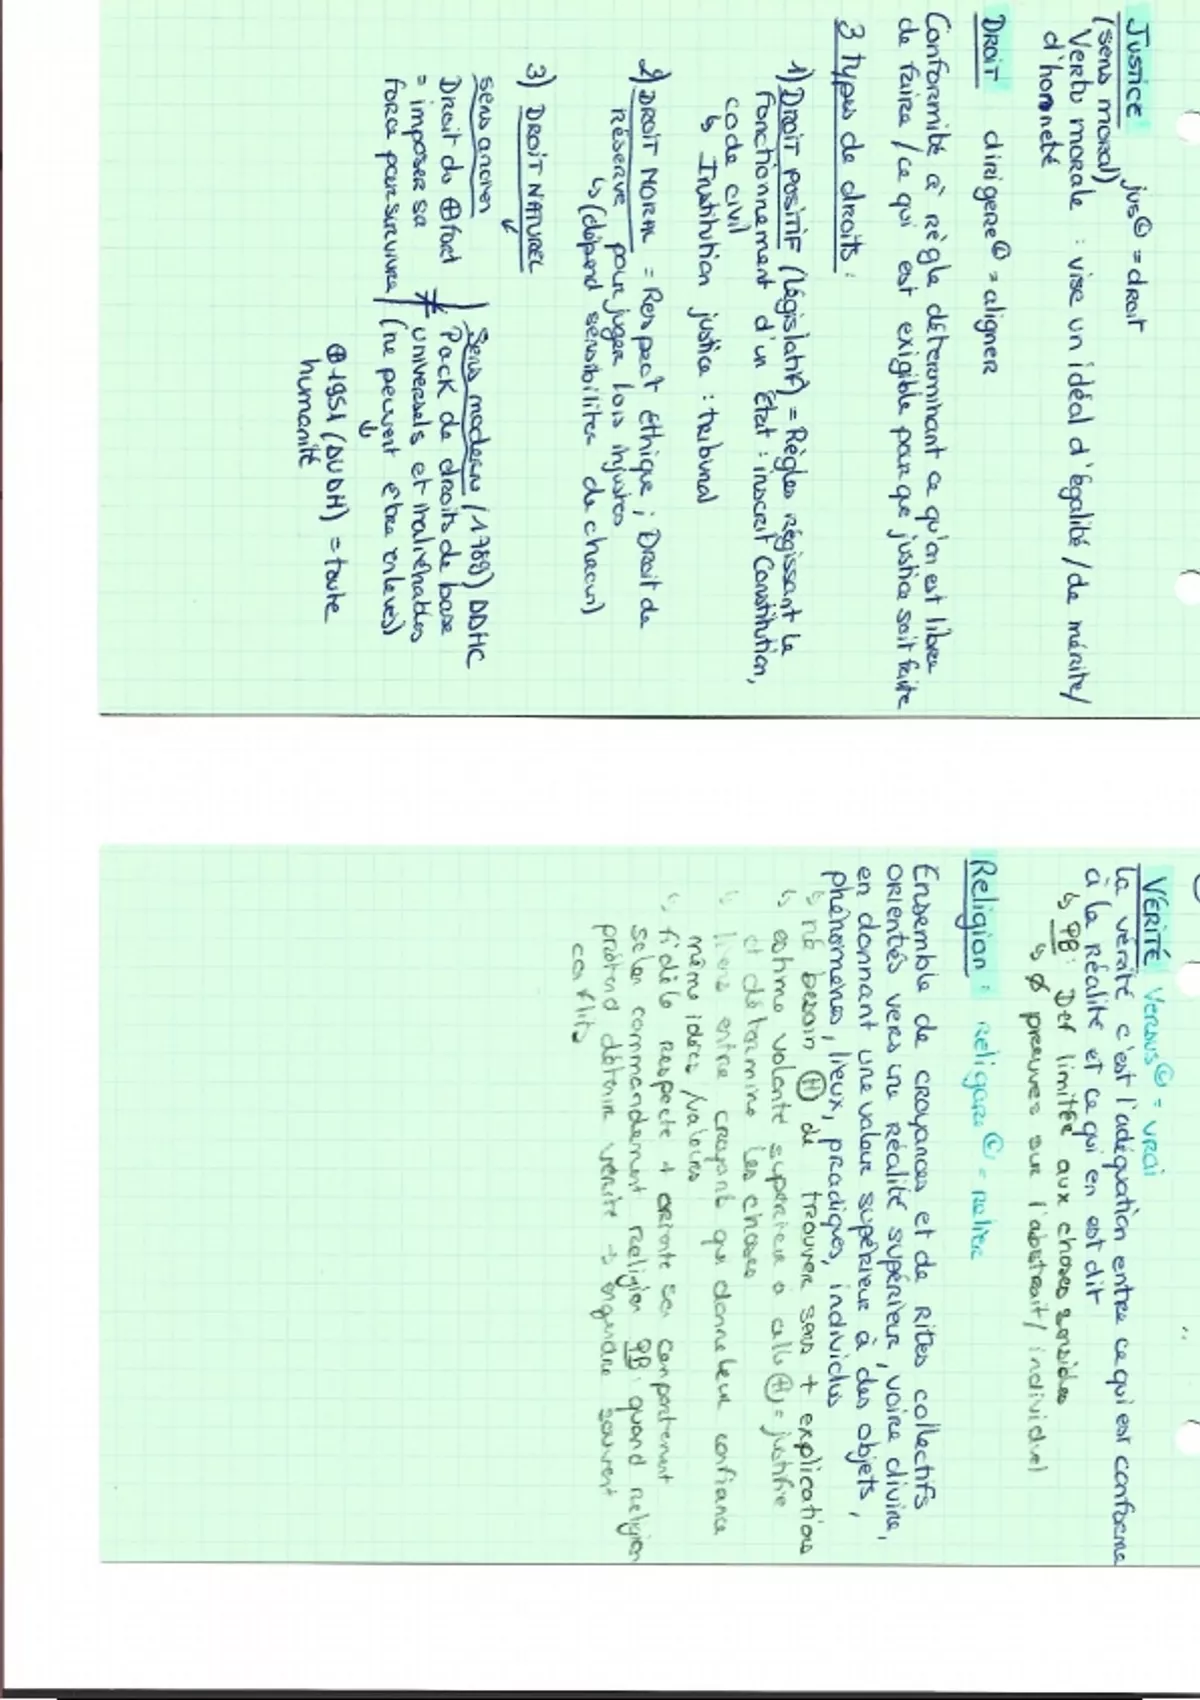 JUSTICE jus Ⓛ = droit
(sens moral)
Vertu morale : vise un idéal d'égalité / de mérite /
d'honneté
DROIT dirigere Ⓛ = aligner
Conformité à règle déterminant ce qu'on est libre
de faire / ce qui est exigible pour que justice soit faite
3 types de droits :
1) DROIT POSITIF (législatif) = Règles régissant le
fonctionnement d'un état : inscrit Constitution,
code civil
↳ Institution justice : tribunal
2) DROIT MORAL = Respect éthique ; Droit de
réserve pour juger lois injustes
↳ (dépend sensibilités de chacun)
3) DROIT NATUREL
sens ancien
Droit du ⊕ fort
= imposer sa
force pour survivre
≠
Sens moderne (1789) DDHC
Pack de droits de base
universels et inaliénables
(ne peuvent être enlevés)
⊕ 1951 (DUDH) = toute
humanité
VÉRITÉ Versus Ⓛ = vrai
La vérité c'est l'adéquation entre ce qui est conforme
à la réalité et ce qui en est dit
↳ PB : Def limitée aux choses sensibles
↳ ∅ preuves sur l'abstrait / individuel
Religion : religare Ⓛ = relier
Ensemble de croyances et de rites collectifs
orientés vers une réalité supérieur, voire divine,
en donnant une valeur supérieur à des objets,
phénomènes, lieux, pradiques, individus
↳ né besoin Ⓗ de trouver sens + explications
↳ estime volonté supérieur à celle Ⓗ = justifie
et détermine les choses
↳ liens entre croyants qui donne leur confiance
même idées / valeurs
↳ fidèle respecte + oriente son comportement
selon commandement religion PB : quand religion
prétend détenir vérité → engendre souvent
conflits